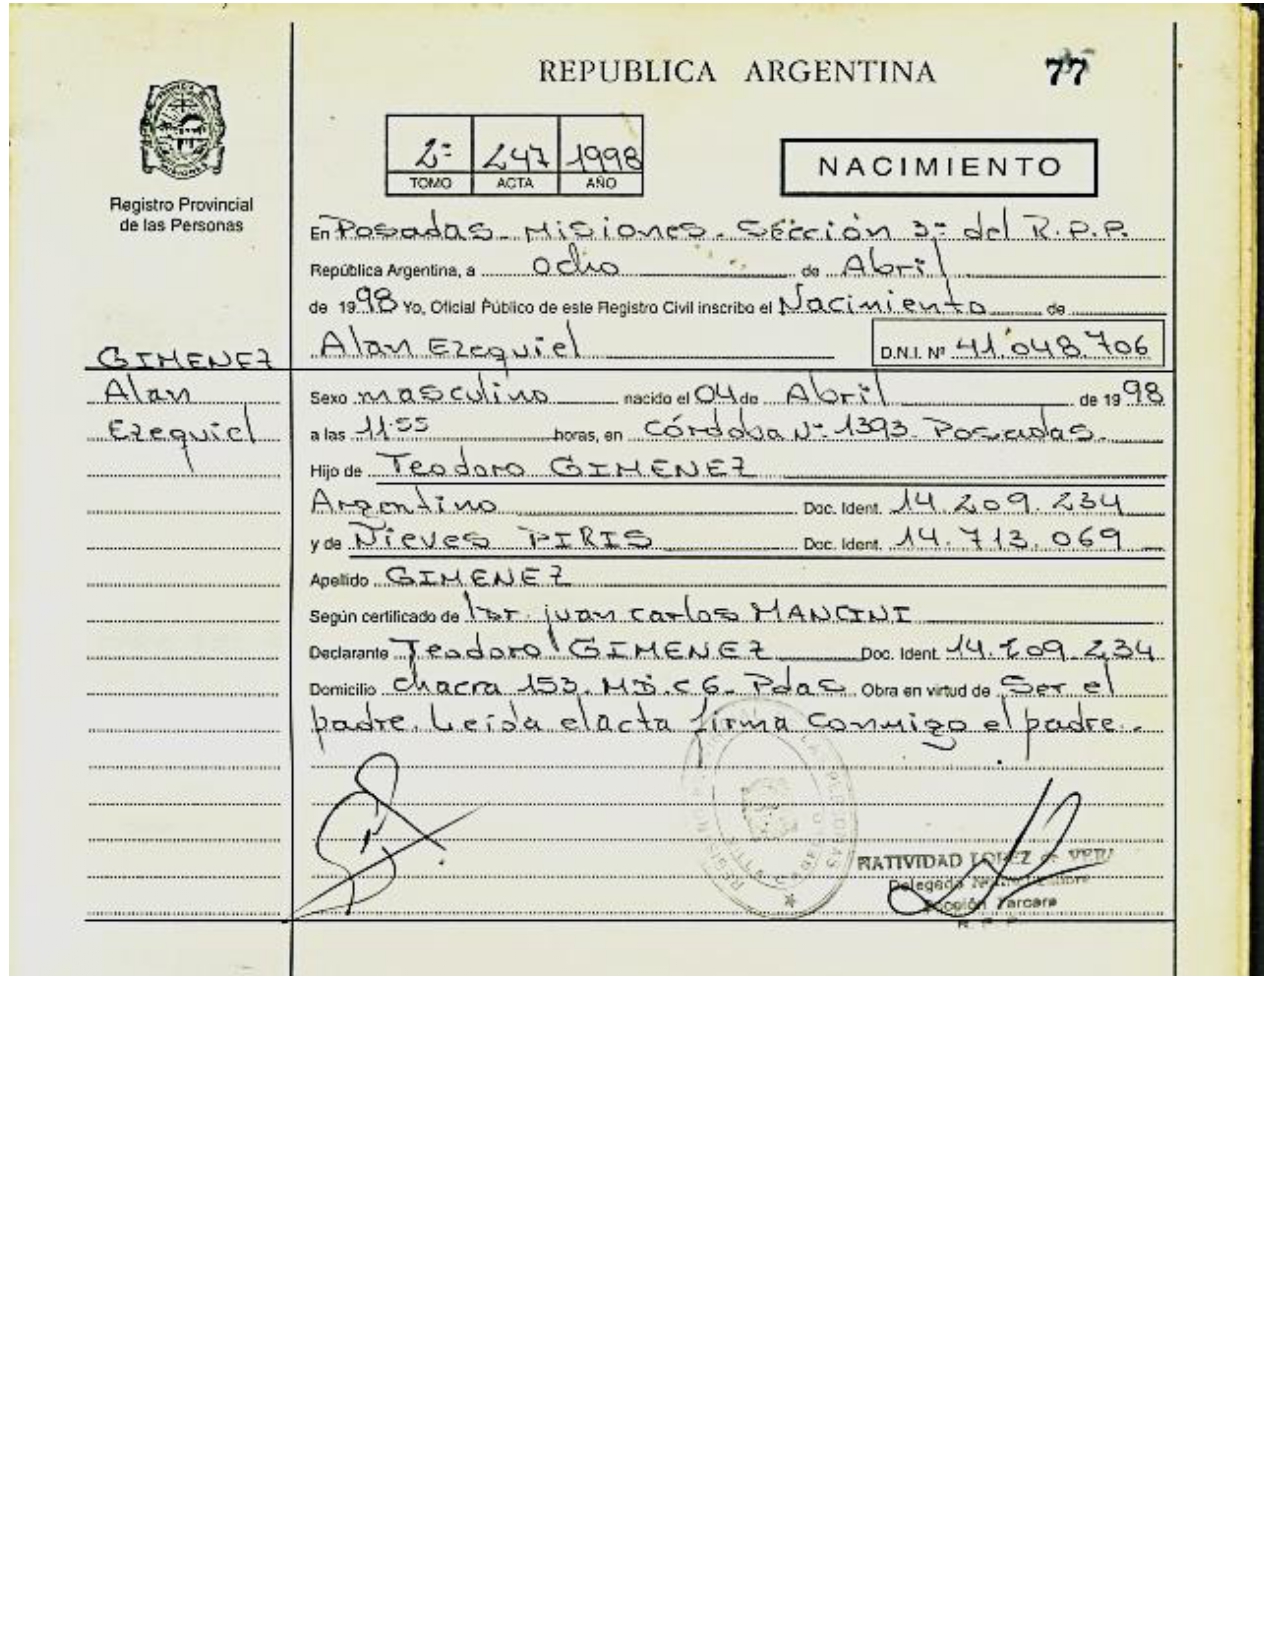 REPUBLICA ARGENTINA
77
2º 247 1998
TOMO ACTA AÑO
NACIMIENTO
Registro Provincial
de las Personas
En Posadas - Misiones - Sección 3º del R.P.P.
República Argentina, a ocho de Abril
de 1998 Yo, Oficial Público de este Registro Civil inscribo el Nacimiento de
Alan Ezequiel D.N.I. Nº 41.048.706
GIMENEZ
Alan
Ezequiel
Sexo masculino nacido el 04 de Abril de 1998
a las 11:55 horas, en Córdoba Nº 1393 - Posadas.
Hijo de Teodoro GIMENEZ
Argentino Doc. Ident. 14.209.234
y de Nieves PIRIS Doc. Ident. 14.713.069
Apellido GIMENEZ
Según certificado de Dr. juan carlos MANCINI
Declarante Teodoro GIMENEZ Doc. Ident. 14.209.234
Domicilio chacra 153. c 6 - Pdas Obra en virtud de Ser el
padre. Leída el acta firma conmigo el padre.
NATIVIDAD LOPEZ
Delegado
Sección Tercera
R. P. P.